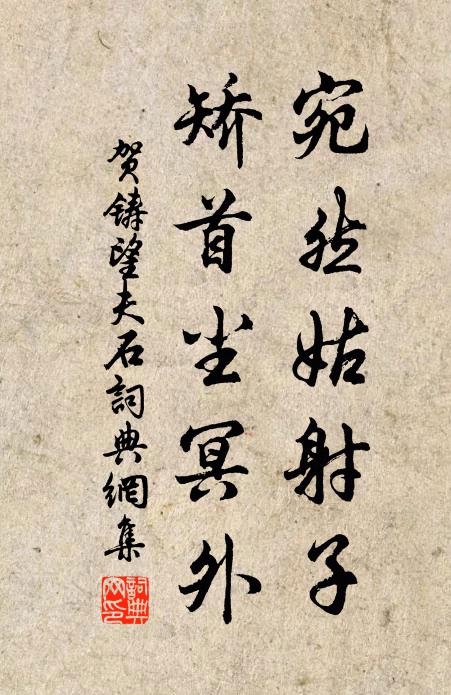 宛然姑射子
矫首尘冥外
贺铸望夫石詞典網集
詞典网印